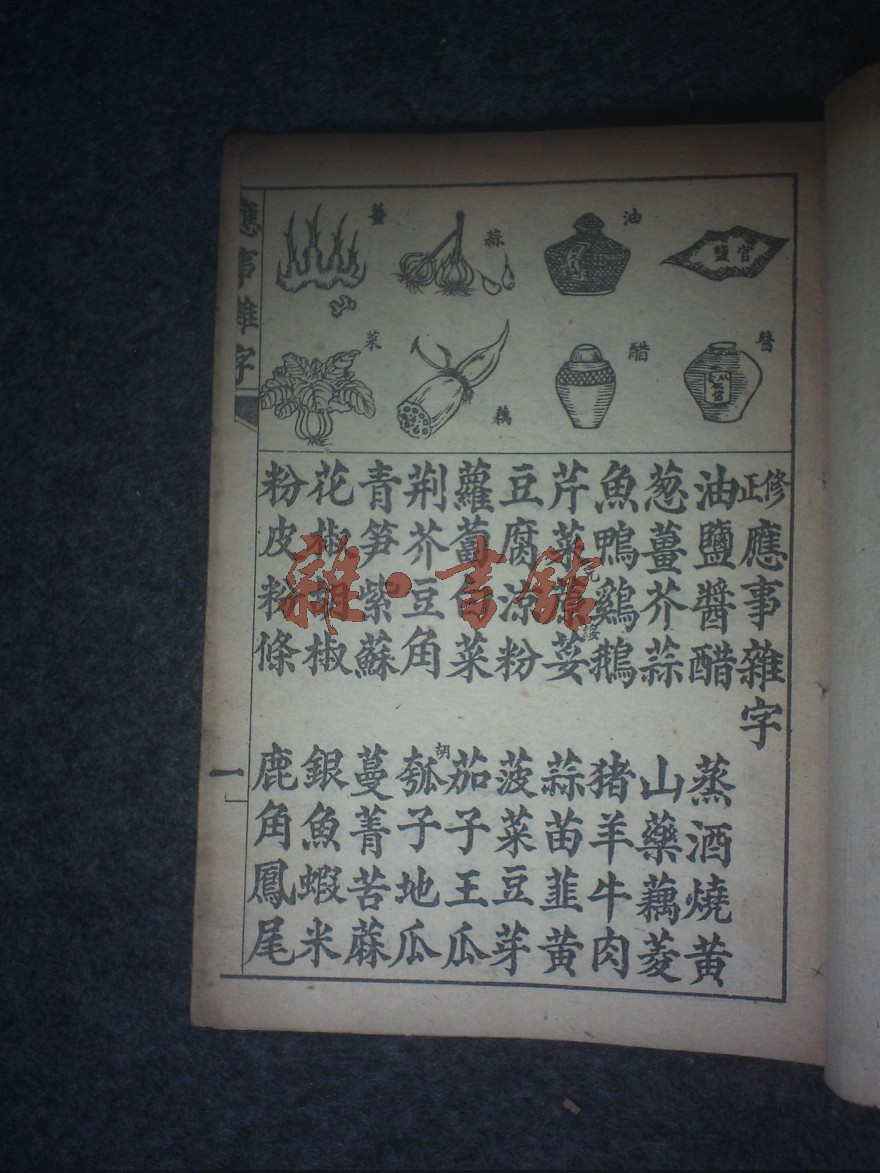 官鹽
油
蒜
薑
醬
醋
藕
菜
修正應事雜字
油鹽醬醋 蒸酒燒黃
葱薑芥蒜 山藥藕菱
魚鴨鷄鵝 猪羊牛肉
芹菜荽 蒜苗韮黃
豆腐凉粉 菠菜豆芽
蘿蔔白菜 茄子王瓜
荆芥豆角 瓠胡子地瓜
青笋紫蘇 蔓菁苦蔴
花椒胡椒 銀魚蝦米
粉皮粉條 鹿角鳳尾
應事雜字
一
雜·書館